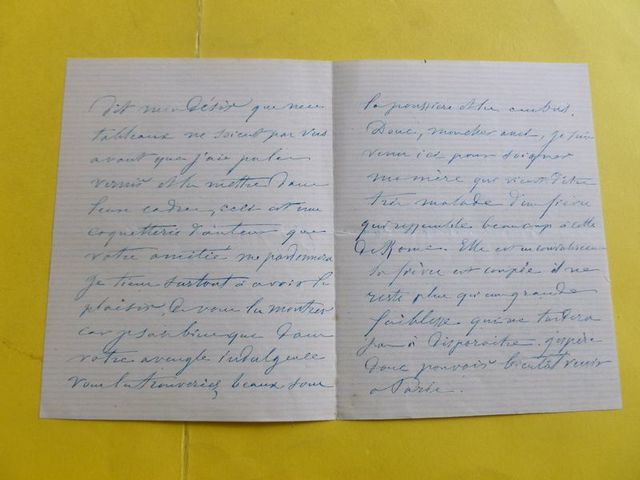 dit mon désir que mes
tableaux ne soient pas vus
avant que j'aie pu les
vernir et les mettre dans
leurs cadres, ceci est une
coquetterie d'auteur que
votre amitié me pardonnera
je tiens surtout à avoir le
plaisir de vous les montrer
car je sais bien que dans
votre aveugle indulgence
vous les trouveriez beaux sous
la poussière et les embus.
Donc, mon cher ami, je suis
venu ici pour soigner
ma mère qui vient d'être
très malade d'une fièvre
qui ressemble beaucoup à celle
de Rome. Elle est en convalescence
la fièvre est coupée il ne
reste plus qu'une grande
faiblesse qui ne tardera
pas à disparaitre. J'espère
donc pouvoir bientôt venir
à Paris.